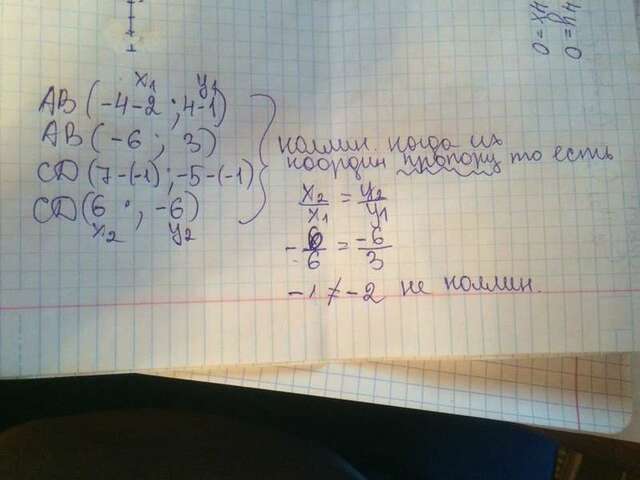 x₁ y₁
AB (-4-2 ; 4-1)
AB (-6 ; 3)
CD (7-(-1) ; -5-(-1)
CD (6 ; -6)
x₂ y₂
коллин. когда их
координ пропорц то есть
x₂/x₁ = y₂/y₁
-6/6 = -6/3
-1 ≠ -2 не коллин.